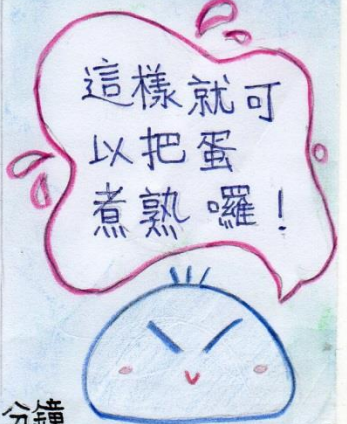 這樣就可
以把蛋
煮熟囉！
分鐘